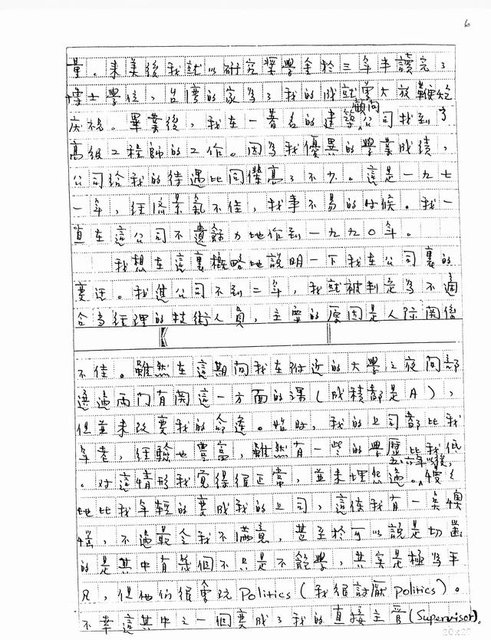 6
量。來美後我就以研究獎學金於三年半讀完了
博士學位,台灣的家為了我的成就曾大放鞭炮
慶祝。畢業後,我在一著名的建築顧問公司找到了
高級工程師的工作。因為我優異的學業成績,
公司給我的待遇比同儕高了不少。這是一九七
一年,經濟景氣不佳,找事不易的時候。我一
直在這公司不遺餘力地作到一九九〇年。
我想在這裏概略地說明一下我在公司裏的
變迁。我進公司不到二年,我就被判定為不適
合為經理的技術人員,主要的原因是人際關係
不佳。雖然在這期間我在附近的大學之夜間部
選過兩门有関這一方面的課(成積都是A),
但並未改變我的命運。始時,我的上司都比我
年老,經驗也豐富,雖然有一些的學歷比我低
。对這情形我覺得很正常,並未埋怨過。五六年以後,慢慢
地比我年輕的變成我的上司,這使我有一點懊
惱,不過最令我不滿意,甚至於可以說是切齒
的是其中有幾個不只是不能學,其实是極為平
凡,但他们很會玩Politics(我很討厭politics)。
不幸這其中之一個變成了我的直接主管(Supervisor)。
20x25